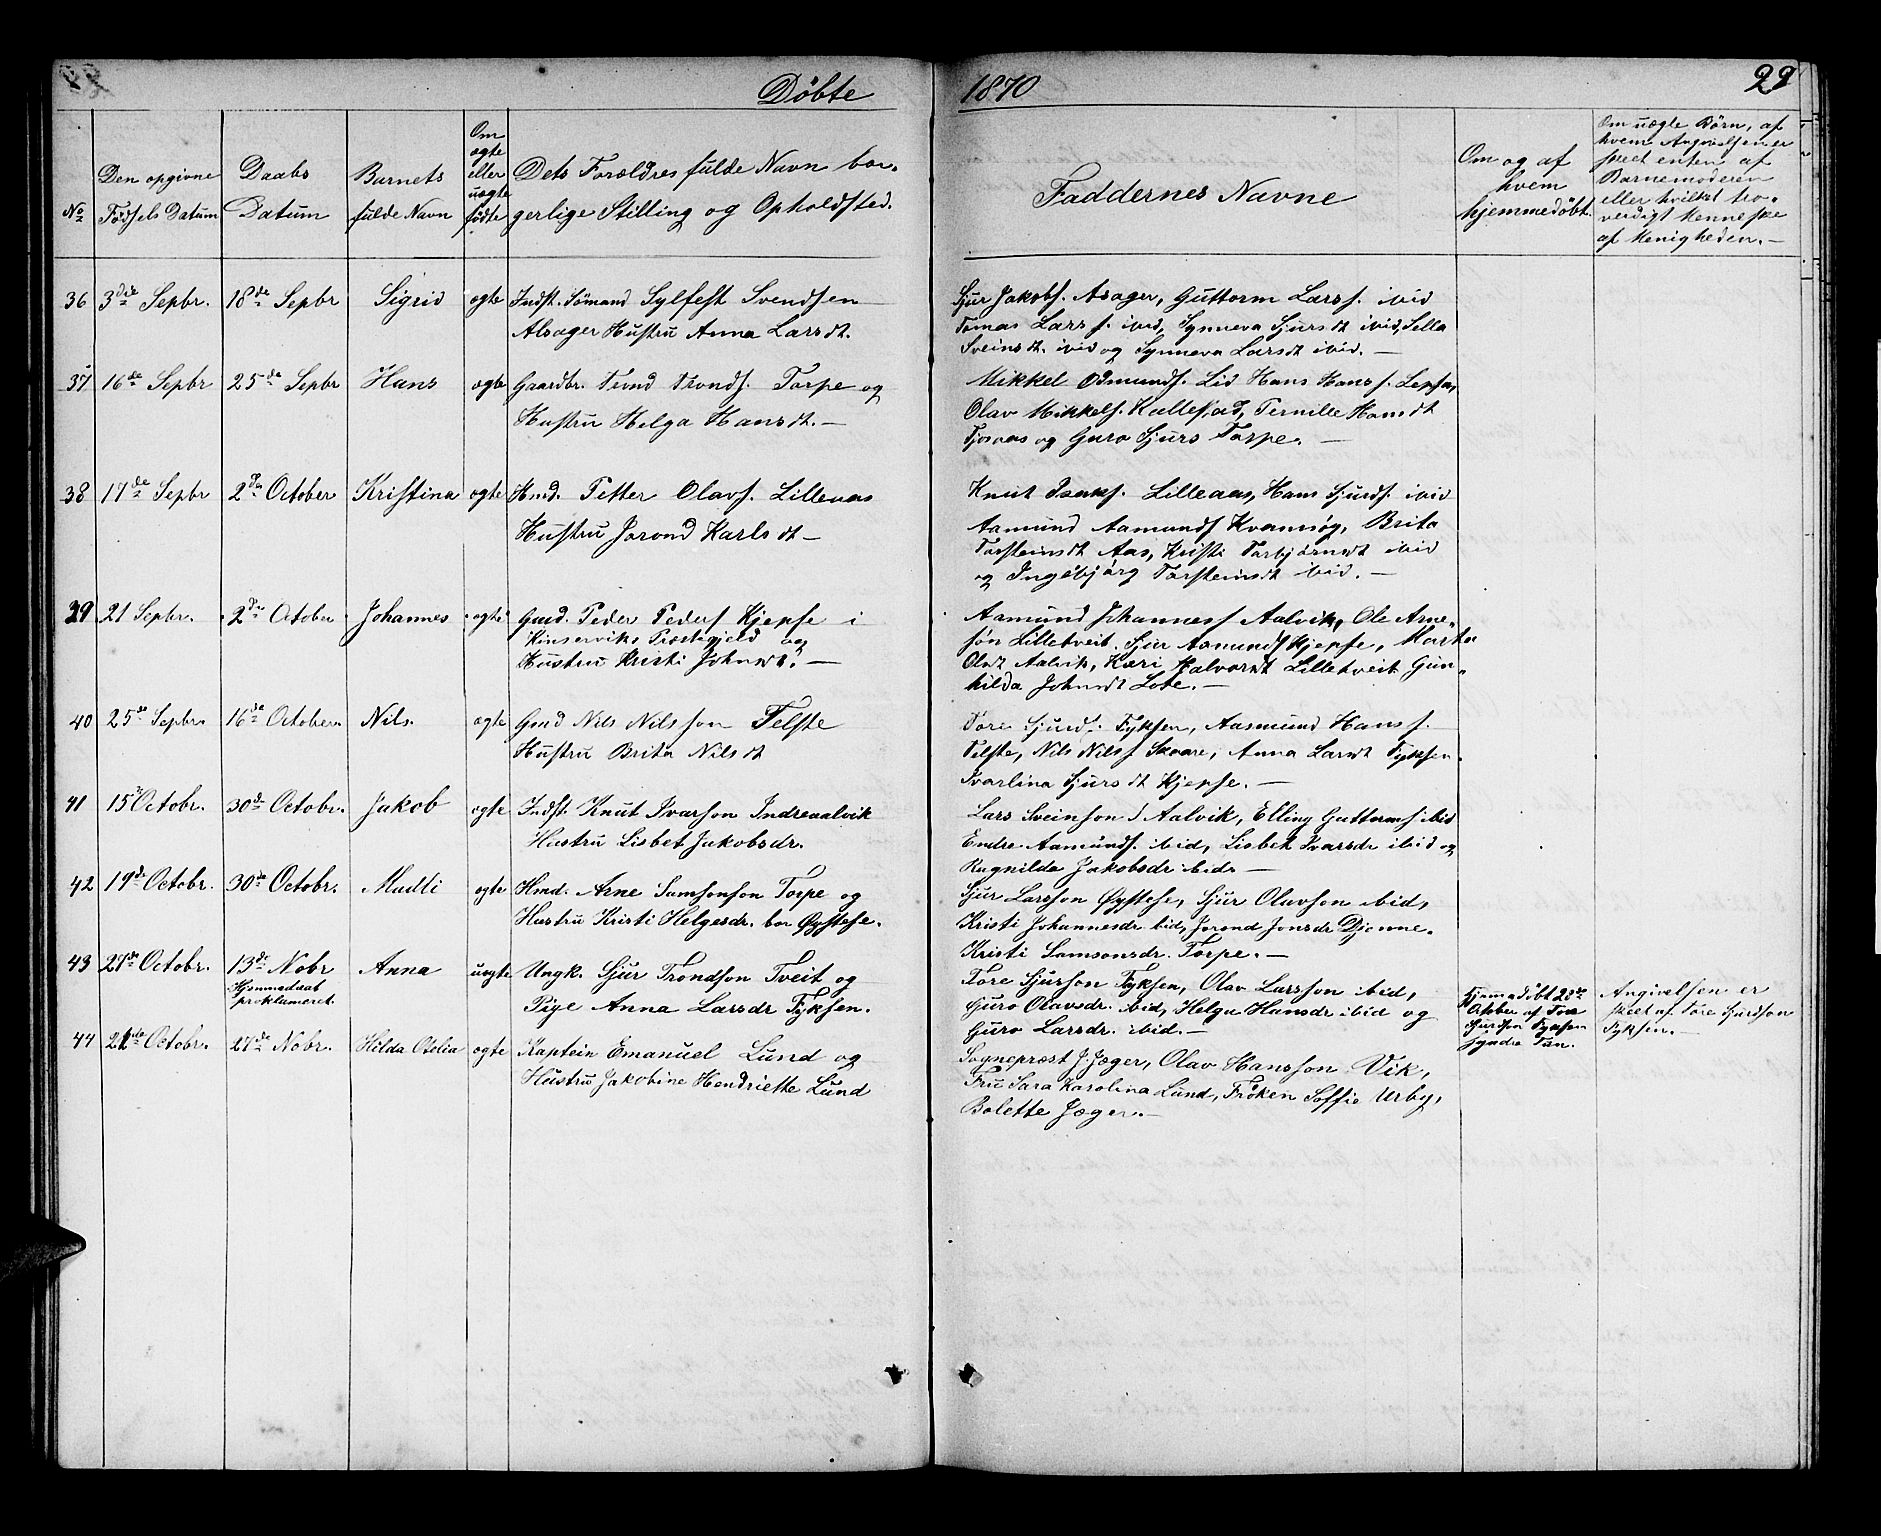 Döbte 1870 22
No
Den opgivne Födsels Datum
Daabs Datum
Barnets fulde Navn
Om ægte eller uægte födte
Dets Forældres fulde Navn bor-
gerlige Stilling og Opholdsted.
Faddernes Navne
Om og af hvem hjemmedöbt.
Om uægte Börn, af
hvem Angivelsen er
skeet enten af
Barnemoderen
eller hvilket tro-
verdigt Menneske
af Menigheden.—
36 3die Sepbr. 18de Sepbr Sigrid ægte Indst. Sömand Sylfest Svendsen
Alsager Hustru Anna Larsdt.
Sjur Jakobs. Asager, Guttorm Larss. ibid
Tomas Larss. ibid, Synneva Sjursdt ibid, Sella
Sveinsdt. ibid og Synneva Larsdt ibid.—
37 16de Sepbr 25de Sepbr Hans ægte Gaardbr. Trond Tronds. Torpe og
Hustru Helga Hansdt.—
Mikkel Odmunds. Lid Hans Hanss. Lepsø,
Olav Mikkels. Kallestad, Pernille Hansdt
og Guro Sjurs Torpe.—
38 17de Sepbr 2den October Kristina ægte Hmd. Petter Olavs. Lilleaas
Hustru Jorond Karlsdt—
Knut Isaks. Lilleaas, Hans Sjurds. ibid
Aamund Aamunds Kvamsög, Brita
Torsteinsdt Aas, Kristi Torbjörnsdt ibid
og Ingebjörg Torsteinsdt ibid.—
39 21 Sepbr. 2den October Johannes ægte Gmd. Peder Peders Kjepse i
Kinserviks Præstegjeld og
Hustru Kristi Johnsdt.—
Aamund Johanness Aalvik, Ole Arne-
sön Lilletveit. Sjur Aamunds Kjepse, Marta
Olsdt Aalvik, Kari Halvorsdt Lilletveit Gun-
hilda Johnsdt Lote.—
40 25de Sepbr. 16de October. Nils. ægte Gmd Nils Nilsson Telste
Hustru Brita Nilsdt
Tore Sjurds. Fyksen, Aasmund Hanss.
Telste, Nils Nilss Skaare, Anna Larsdt Fyksen.
Ivarlina Sjursdt Kjepse.—
41 15 Octobr. 30de Octobr. Jakob ægte Indst. Knut Ivarson Indreaalvik
Hustru Lisbet Jakobsdr.
Lars Sveinson Aalvik, Elling Guttorms ibid
Endre Aamunds. ibid, Lisbet Ivarsdr ibid og
Ragnilda Jakobsdr ibid—
42 19de Octobr. 30de Octobr. Madli ægte Hmd. Arne Samsonson Torpe og
Hustru Kristi Helgesdr. bor Öystese.
Sjur Larsson Öystese, Sjur Olavson ibid,
Kristi Johannesdr ibid, Jorond Jonsdr Djönne.
Kristi Samsonsdr. Torpe.—
43 27de Octobr. 13de Nobr Anna uægte Ungk. Sjur Trondson Tveit og
Hjemmedaab
proklameret.
Pige Anna Larsdr Fyksen.
Tore Sjurson Fyksen, Olav Larsson ibid,
Guro Olavsdr. ibid, Helga Hansdr ibid og
Guro Larsdr. ibid.—
Hjemmedöbt 28de
October af Tore
Sjurdson Fyksen
Angivelsen er
skeet af Tore Sjurdson
Fyksen.
44 Octobr. 27de Nobr. Hilda Otelia ægte Kaptein Emanuel Lund og
Hustru Jakobine Hendriette Lund
Sogneprest J. Jæger, Olav Hansson Vik,
Fru Sara Karolina Lund, Fröken Soffie Urby,
Bolette Jæger.—